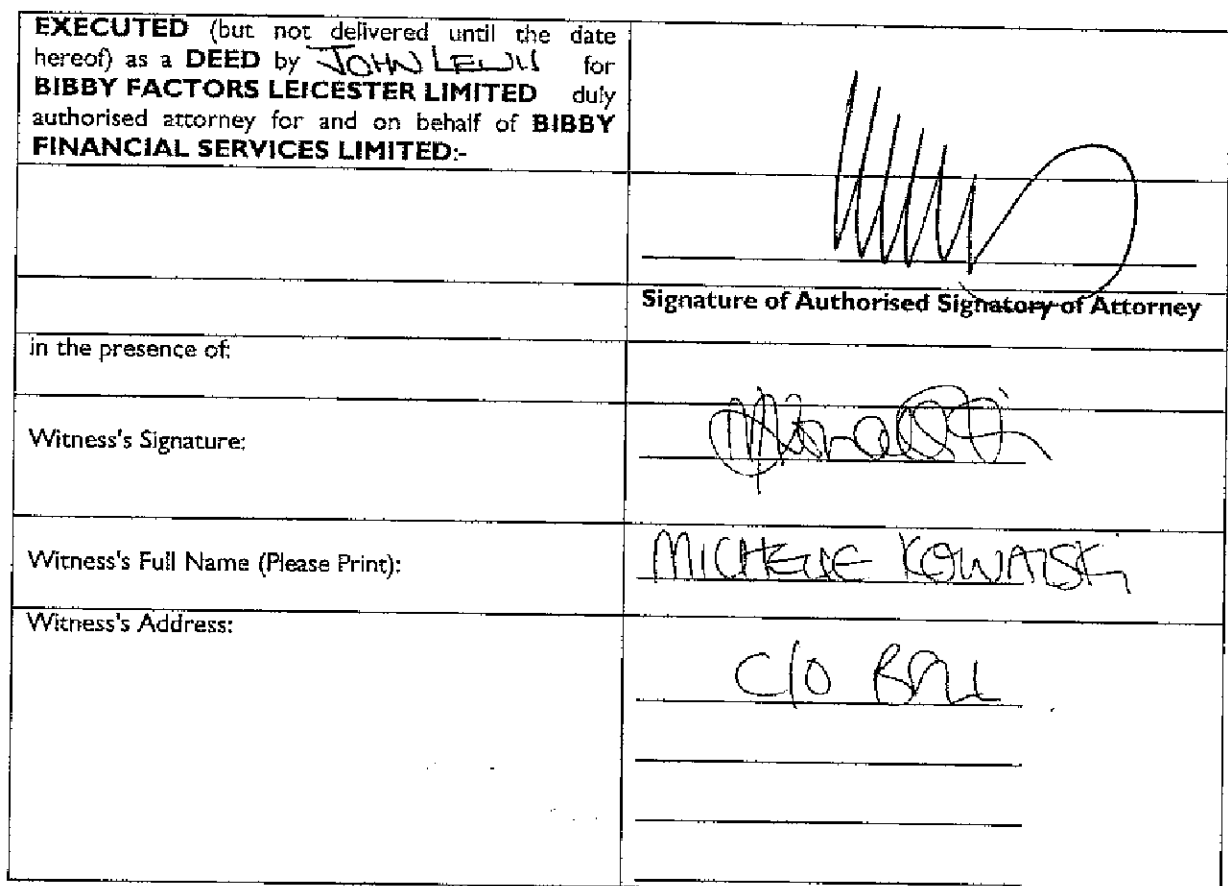 EXECUTED (but not delivered until the date
hereof) as a DEED by JOHN LEWIS for
BIBBY FACTORS LEICESTER LIMITED duly
authorised attorney for and on behalf of BIBBY
FINANCIAL SERVICES LIMITED:-
Signature of Authorised Signatory of Attorney
in the presence of:
Witness's Signature:
Witness's Full Name (Please Print):
MICHELLE KOWALSKI
Witness's Address:
C/O